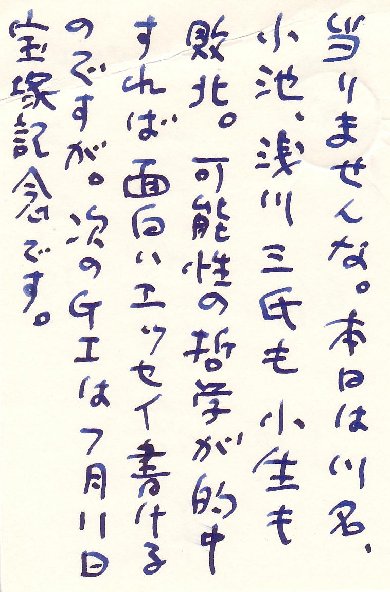 当りませんな。本日は川名、
小池、浅川三氏も小生も
敗北。可能性の哲学が的中
すれば面白いエッセイ書ける
のですが。次のGIは7月11日
宝塚記念です。